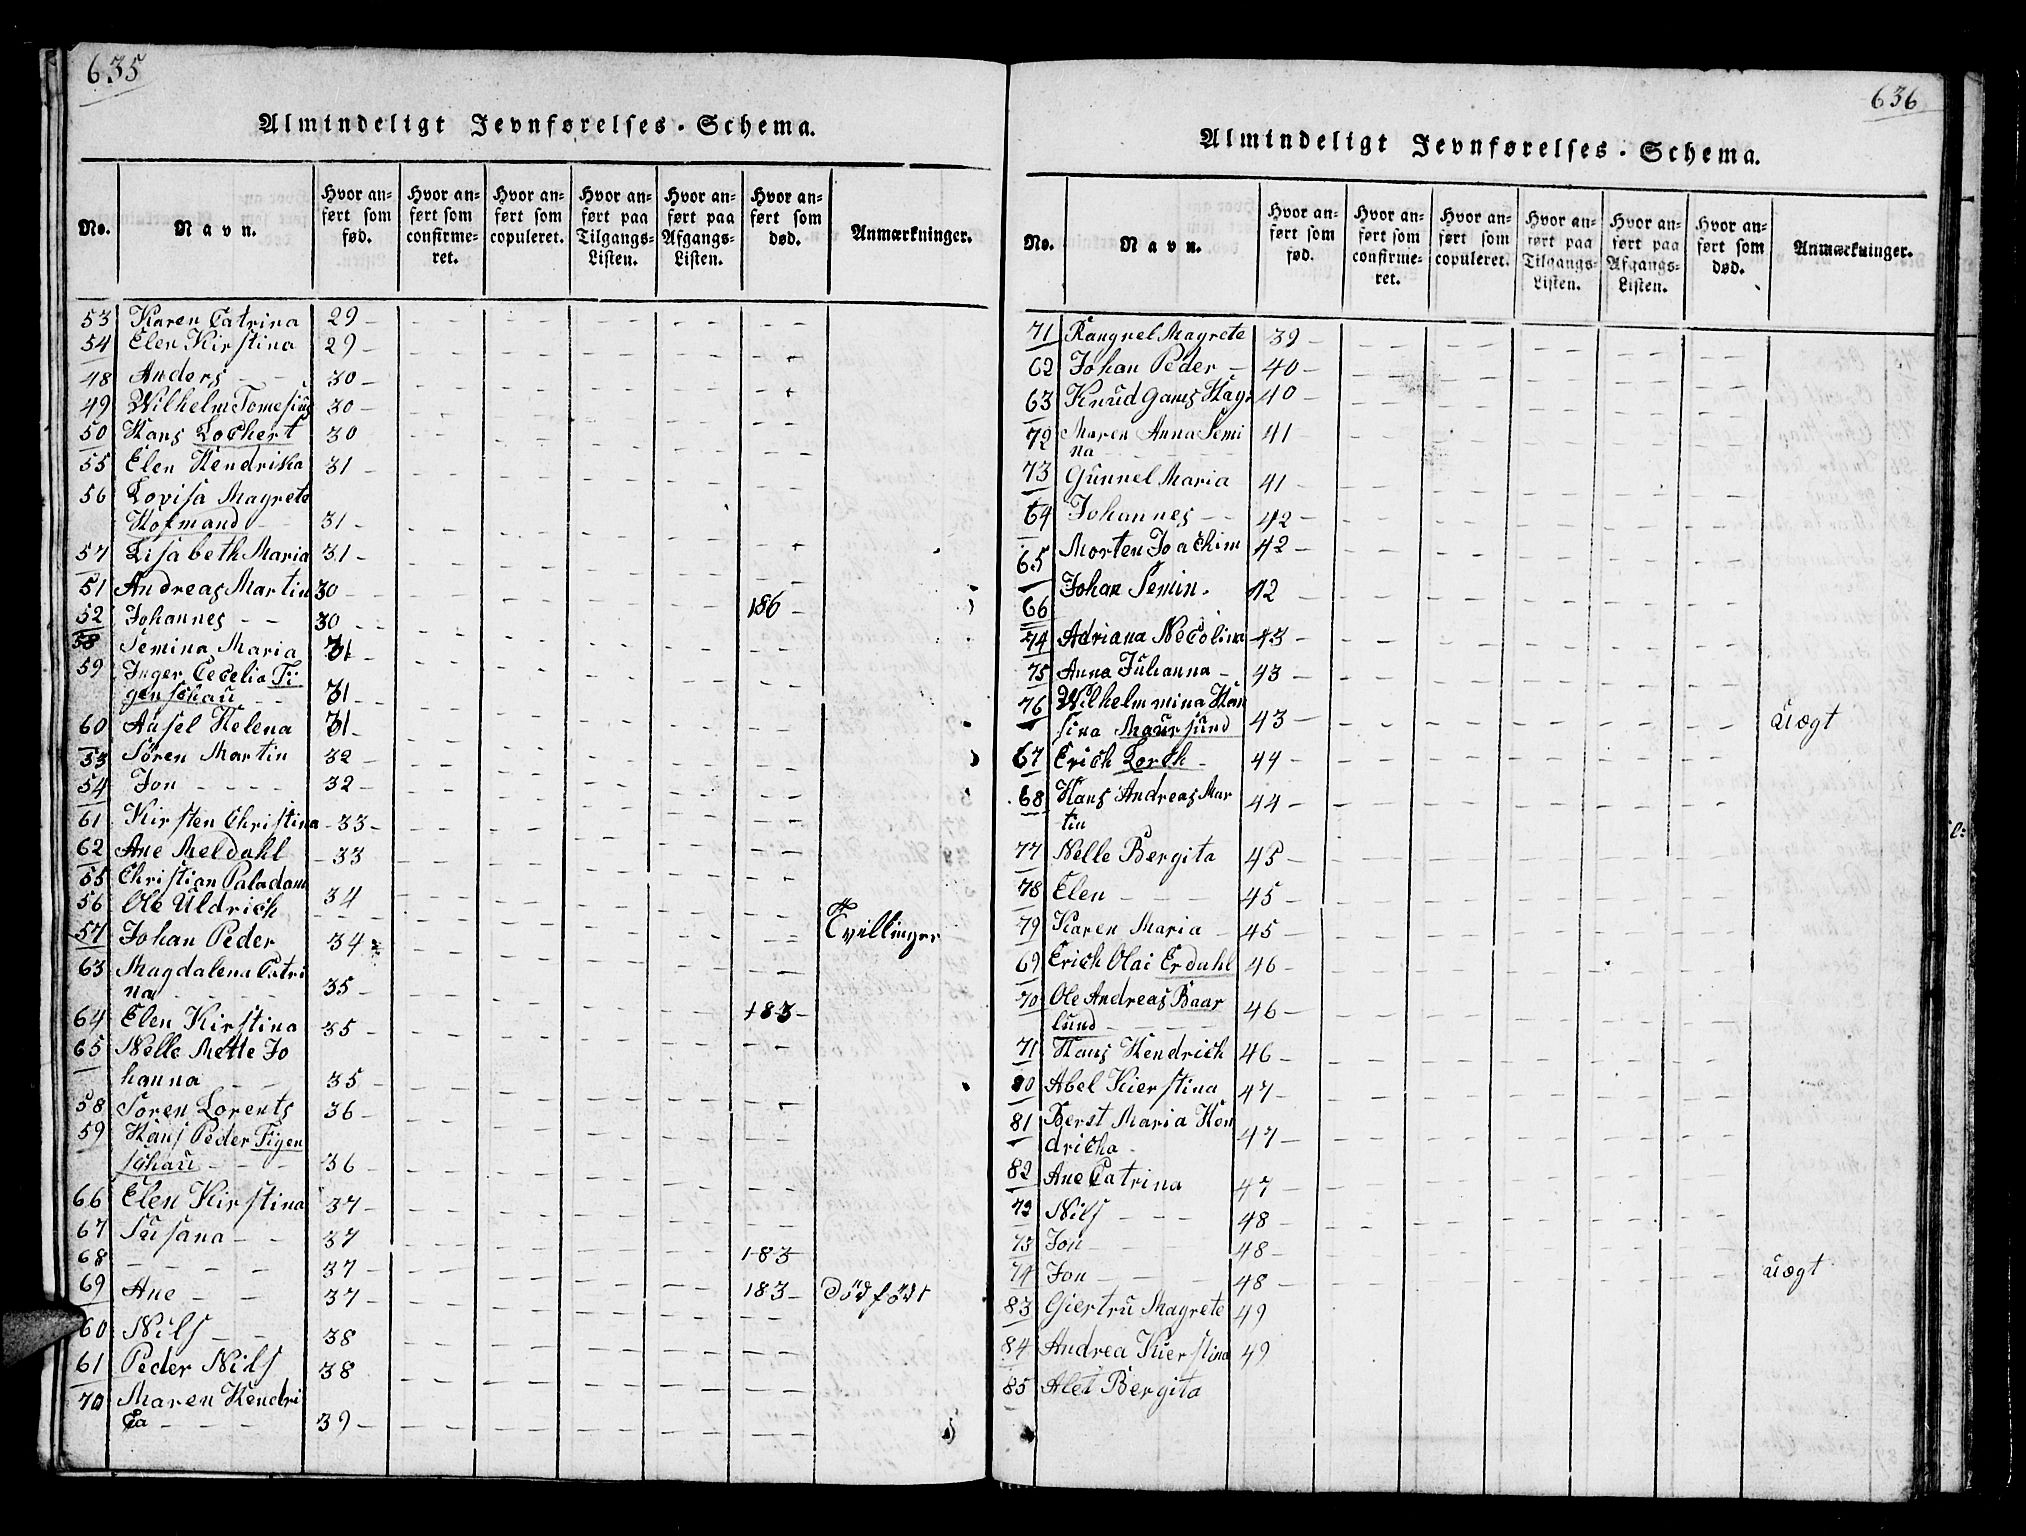 635
Almindeligt Jevnførelses-Schema.
No. Navn. Hvor anført som fød. Hvor anført som confirmeret. Hvor anført som copuleret. Hvor anført paa Tilgangs-Listen. Hvor anført paa Afgangs-Listen. Hvor anført som død. Anmærkninger.
53 Karen Catrina 29
54 Elen Kirstina 29
48 Anders 30
49 Wilhelm Tomesius 30
50 Hans Lochert 30
55 Elen Hendrika 31
56 Lovisa Magrete
Hofmand 31
57 Lisabeth Maria 31
51 Andreas Martin 30
52 Johannes 30 186
58 Semina Maria 31
59 Inger Cecelia Fi
genschau 31
60 Aasel Helena 31
53 Sören Martin 32
54 Jon 32
61 Kirsten Christina 33
62 Ane Meldahl 33
55 Christian Paladam
56 Ole Uldrich 34
57 Johan Peder 34 Tvillinger
63 Magdalena Catri
na 35
64 Elen Kirstina 35 183
65 Nelle Mette Jo
hanna 35
58 Sören Lorents 36
59 Hans Peder Figen
schau 36
66 Elen Kirstina 37
67 Susana 37
68 37 183
69 Ane 37 183 Dödfödt
60 Nils 38
61 Peder Nils 38
70 Maren Hendri
ca 39
636
Almindeligt Jevnførelses-Schema.
No. Navn. Hvor anført som fød. Hvor anført som confirmeret. Hvor anført som copuleret. Hvor anført paa Tilgangs-Listen. Hvor anført paa Afgangs-Listen. Hvor anført som død. Anmærkninger.
71 Rangnel Magrete 39
62 Johan Peder 40
63 Knud Gams Hagr 40
72 Maren Anna Semi
na 41
73 Gunnel Maria 41
64 Johannes 42
65 Morten Joachim 42
66 Johan Semin. 42
74 Adriana Necolina 43
75 Anna Juhanna 43
76 Wilhelmmina Han
sina Maursund 43 uægt
67 Erich Lorch 44
68 Hans Andreas Mar
tin 44
77 Nelle Bergita 45
78 Elen 45
79 Karen Maria 45
69 Erich Olai Erdahl 46
70 Ole Andreas Baar
lund 46
71 Hans Hendrich 46
80 Abel Kierstina 47
81 Berst Maria Hen
dricha 47
82 Ane Catrina 47
72 Nils 48
73 Jon 48
74 Jon 48 uægt
83 Giertru Magrete 49
84 Andrea Kierstina 49
85 Alet Bergita